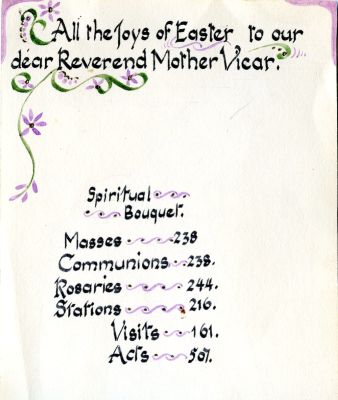 All the Joys of Easter to our
dear Reverend Mother Vicar.
Spiritual
Bouquet.
Masses 238
Communions 238.
Rosaries 244.
Stations 216.
Visits 161.
Acts 501.